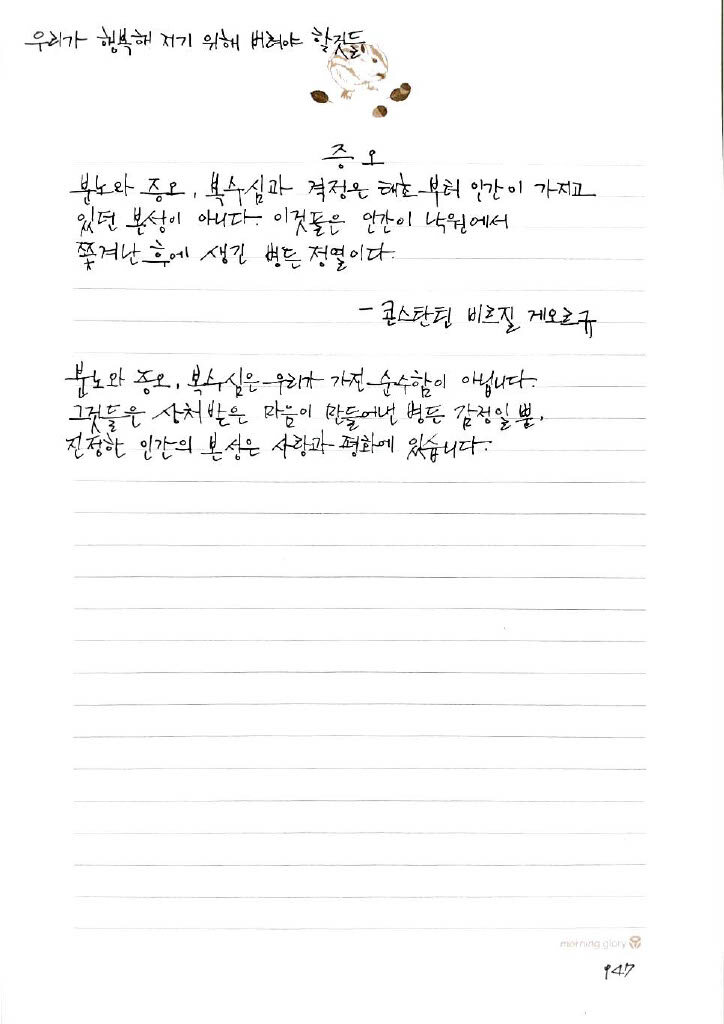 우리가 행복해 지기 위해 버려야 할것들
증오
분노와 증오, 복수심과 격정은 태초부터 인간이 가지고
있던 본성이 아니다. 이것들은 인간이 낙원에서
쫓겨난 후에 생긴 병든 정열이다.
- 콘스탄틴 비르질 게오르규
분노와 증오, 복수심은 우리가 가진 순수함이 아닙니다.
그것들은 상처받은 마음이 만들어낸 병든 감정일 뿐,
진정한 인간의 본성은 사랑과 평화에 있습니다.
morning glory
947